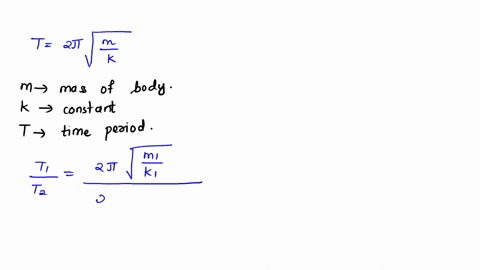 T = 2π √(m/k)
m → mas of body.
k → constant
T → time period.
T₁/T₂ = 2π √(m₁/k₁) / 2